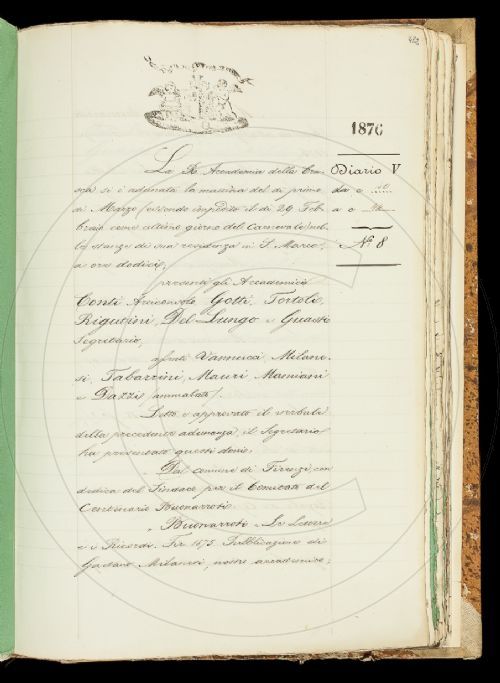 1876
La R. Accademia della Cru-
sca si è adunata la mattina del dì primo
di Marzo (essendo impedito il dì 29 Feb-
braio come ultimo giorno del Carnevale) nel-
le stanze di sua residenza in S. Marco,
a ore dodici;
presenti gli Accademici
Conti Arciconsolo, Gotti, Tortoli,
Rigutini, Del Lungo e Guasti
Segretario,
assenti Vannucci, Milane-
si, Tabarrini, Mauri, Mamiani
e Dazzi (ammalato).
Letto e approvato il verbale
della precedente adunanza, il Segretario
ha presentato questi doni:
Dal comune di Firenze, con
dedica del Sindaco per il Comitato del
Centenario Buonarroti
" Buonarroti - Le Lettere
e i Ricordi. Fir. 1875. Pubblicazione di
Gaetano Milanesi, nostro accademico;
Diario V
da c
a c
N.º 8